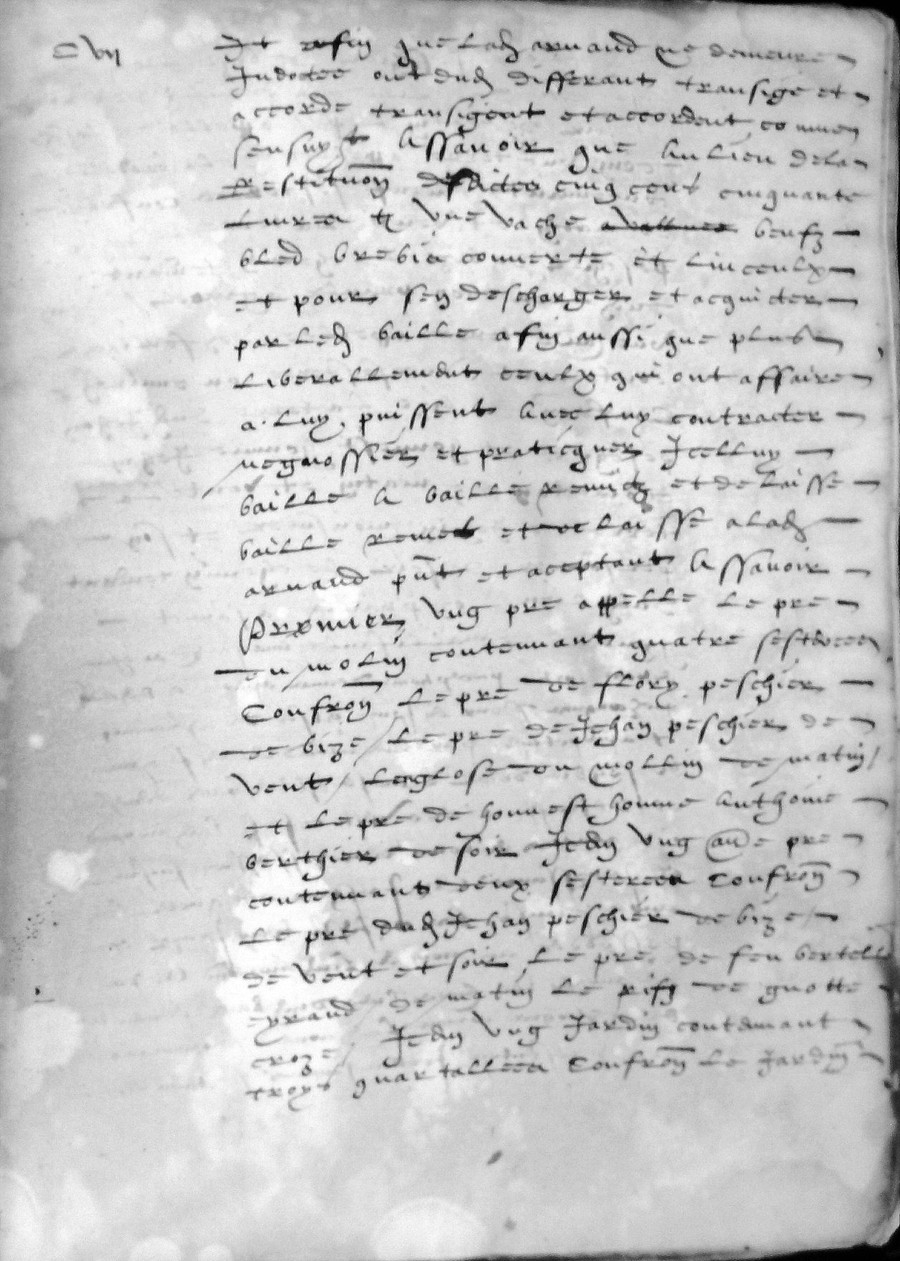 CVII
Et affin que lad arnaud ne demeure
Indotee ont dud differant transige et
accorde transigent et accordent comen
sensuyt Assavoir que au lieu dela
Restituon desdictes cinq cens cinquante
Livres tz Une Vache beufz
bled brebis couverte et linceulx
et pour sen descharger et acquicter
par led baille afin aussi que plus
Liberallement ceulx qui ont affaire
a luy puissent avec luy contracter
negossier et praticquer Icelluy
baille A baille remictz et delaisse
baille remet et delaisse alad
arnaud pnt et aceptant Assavoir
Premier Ung pre appelle le pre
du molin contenant quatre sesterees
Confron le pre de flory peschier
de bize / le pre de Jehan peschier de
vent / du mollin de matin /
et le pre de honnest homme Anthoine
berthier de soir Item Ung aue pre
contenant deux sesterees Confron
Le pre dud Jehan peschier de bize /
de vent et soir le pre de feu bertell
eyraud de matin le rif de guotte
croze Item Ung Jardin contenant
troys quartallees Confron le Jardin